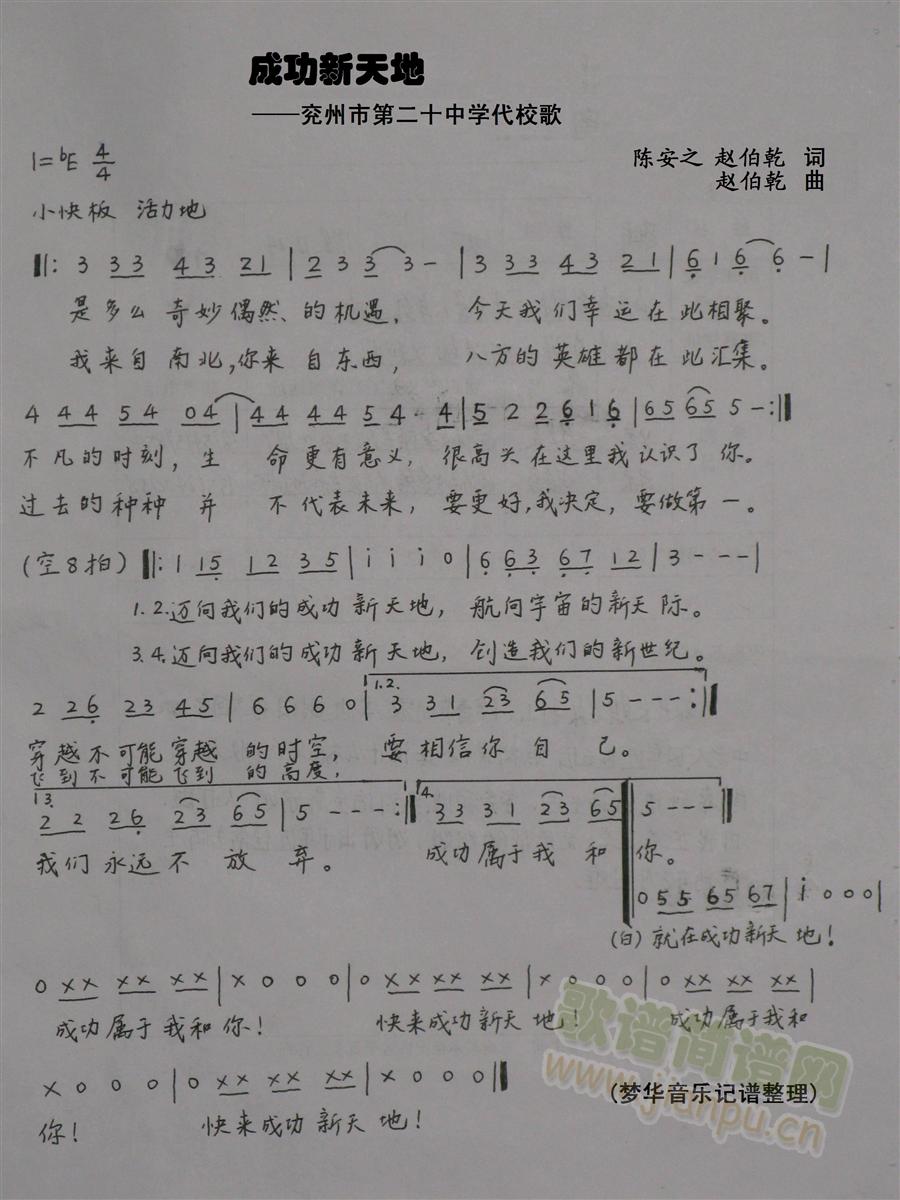 成功新天地
——兖州市第二十中学代校歌
1=♭E 4/4
陈安之 赵伯乾 词
赵伯乾 曲
小快板 活力地
‖: 3 33 43 21 | 2 3 3 3 - | 3 33 43 21 | 6 1 6 6 - |
是多么 奇妙偶然、的机遇, 今天我们幸运在此相聚。
我来自南北,你来自东西, 八方的英雄都在此汇集。
4 44 54 04 | 44 44 54· 4 | 5 2 26 16 | 65 65 5 - :‖
不凡的时刻, 生 命更有意义, 很高兴在这里我认识了你。
过去的种种 并 不代表未来, 要更好,我决定, 要做第一。
(空8拍) ‖: 1 15 12 35 | i i i 0 | 6 63 67 12 | 3 - - - |
1.2.迈向我们的成功新天地, 航向宇宙的新天际。
3.4.迈向我们的成功新天地, 创造我们的新世纪。
2 26 23 45 | 6 6 6 0 | 1.2. 3 31 23 65 | 5 - - - :‖
穿越不可能穿越的时空, 要相信你自己。
飞到不可能飞到的高度,
13. 22 26 23 65 | 5 - - - :‖ 4. 33 31 23 65 ‖ 5 - - - ‖
我们永远不放弃。 成功属于我和你。
0 55 65 67 | i 0 0 0 |
(白) 就在成功新天地!
0 xx xx xx | x 0 0 0 | 0 xx xx xx | x 0 0 0 | 0 xx xx xx |
成功属于我和你! 快来成功新天地! 成功属于我和
x 0 0 0 | 0 xx xx xx | x 0 0 0 ‖
你! 快来成功新天地!
(梦华音乐记谱整理)
歌谱简谱网
www.jianpu.cn